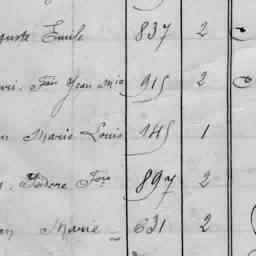 guste Emile 837 2
ri. Fois Jean Mie 915 2
n Marie Louis 145 1
. Isidore Fois 897 2
an Marie 631 2